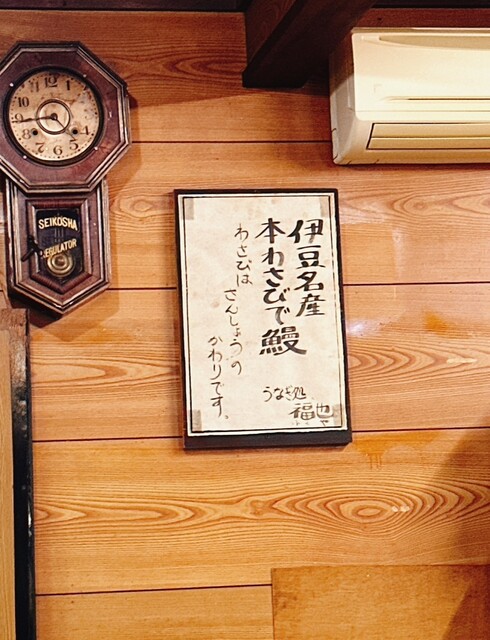 伊豆名産
本わさびで鰻
わさびは
さんしょうの
かわりです。
うなぎ処
福也
SEIKOSHA
REGULATOR